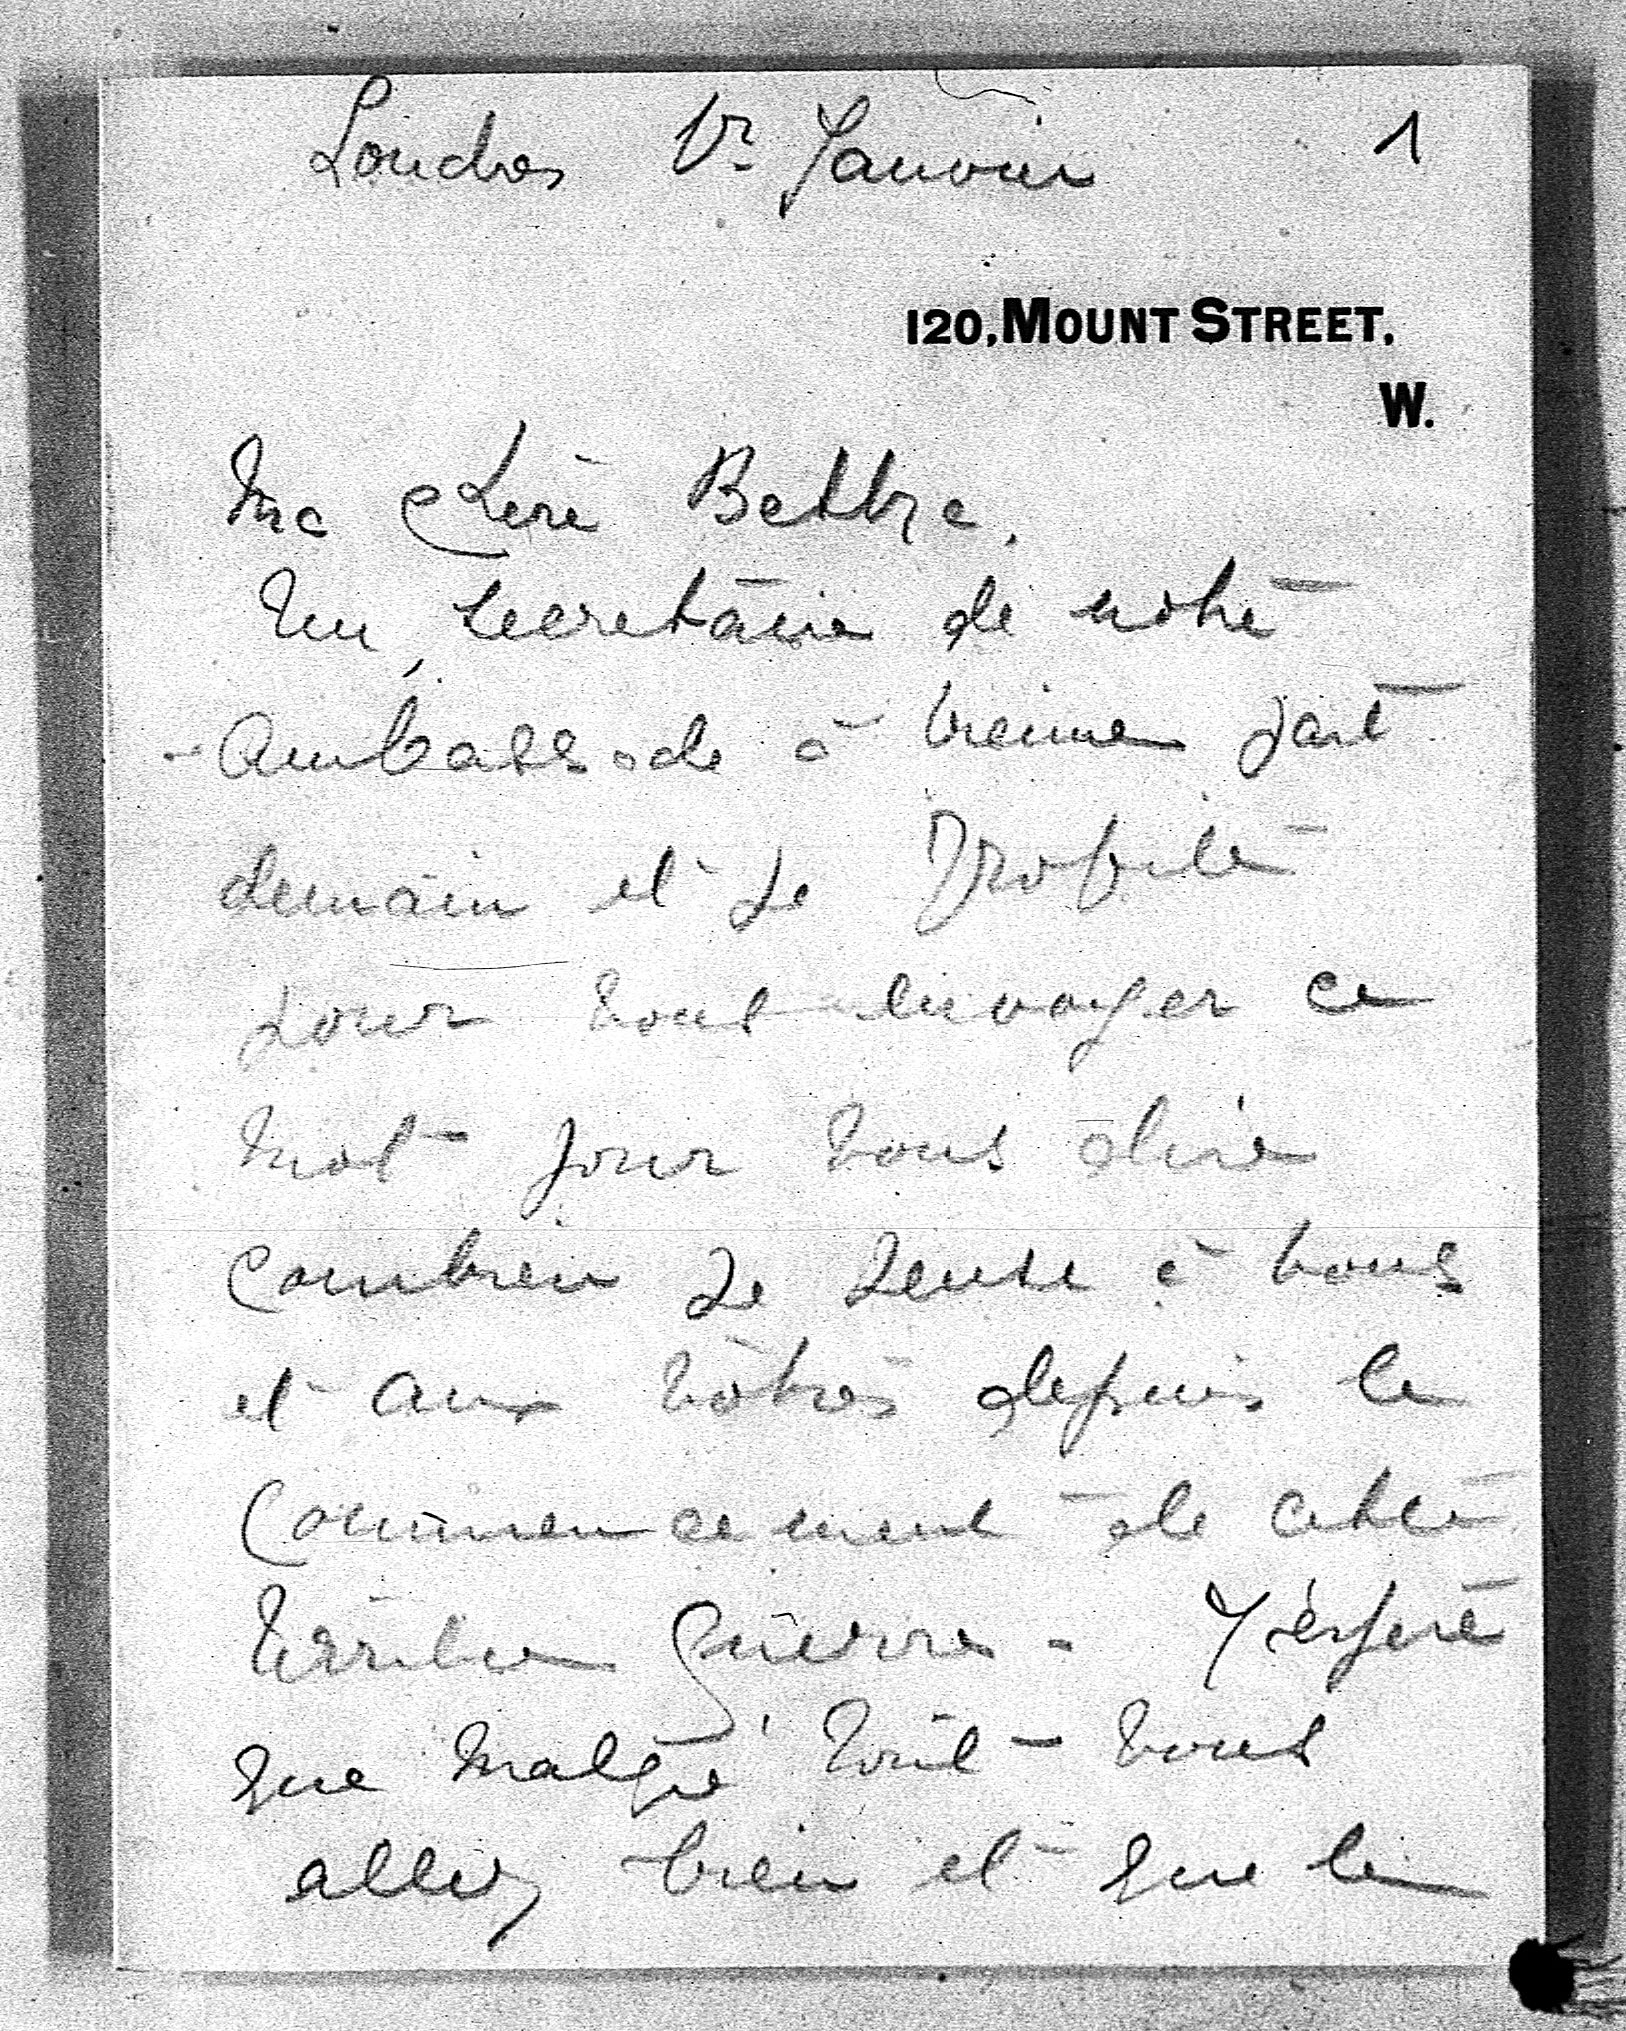 Londres 1er Janvier 1
120, MOUNT STREET,
W.
Ma chère
Un secretaire de notre
ambassade à Vienne part
demain et je profite
pour vous envoyer ce
mot pour vous dire
combien je pense à vous
et aux vôtres depuis le
commencement de cette
terrible guerre - J'espère
que malgré tout - vous
allez bien et que le